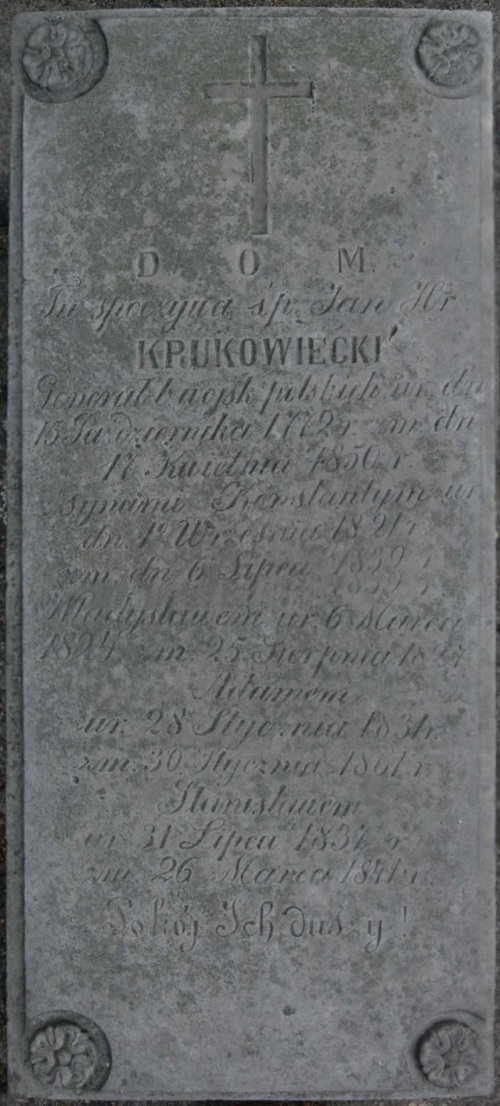 D O M.
Tu spoczywa ś.p. Jan Hr.
KRUKOWIECKI
Generał b. wojsk polskich ur. dn.
15 Października 1772 r. zm. dn.
17 Kwietnia 1850 r.
z synami Konstantym ur.
dn. 1 Września 1821 r.
zm. dn. 6 Lipca 1832 r.
Władysławem ur. 6 Marca
1824 zm. 25 Sierpnia
Adamem
ur. 28 Stycznia 1831 r.
zm. 30 Stycznia r.
Stanisławem
ur. 31 Lipca r.
zm. 26 Marca 1841 r.
Pokój Ich duszy!